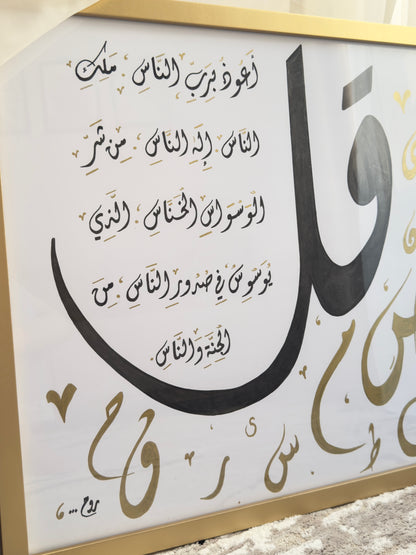 قل
أَعُوذُ بِرَبِّ النَّاسِ مَلِكِ
النَّاسِ إِلَهِ النَّاسِ مِن شَرِّ
الْوَسْوَاسِ الْخَنَّاسِ الَّذِي
يُوَسْوِسُ فِي صُدُورِ النَّاسِ مِنَ
الْجِنَّةِ وَالنَّاسِ
روح ...